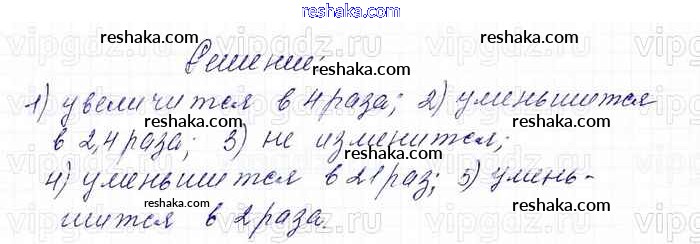 reshaka.com
Решение:
reshaka.com
reshaka.com
1) увеличится в 4 раза; 2) уменьшится
reshaka.com
в 2,4 раза; 3) не изменится;
reshaka.com
4) уменьшится в 21 раз; 5) умень-
reshaka.com
шится в 2 раза.
reshaka.com